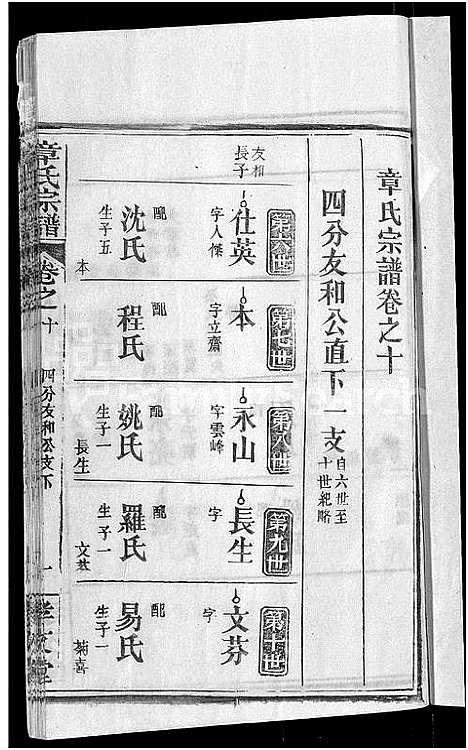 章氏宗譜卷之十
四分友和公直下一支
自六世至
十世紀略
第六世
友和
長子
仕英
字人傑
配
沈氏
生子五
本
第七世
本
字立齋
配
程氏
生子一
第八世
永山
字雲峰
配
姚氏
生子一
長生
第九世
長生
字
配
羅氏
生子一
文芬
第十世
文芬
字
配
易氏
生子一
菊喜
章氏宗譜
卷之十
四分友和公支下
一
孝友堂